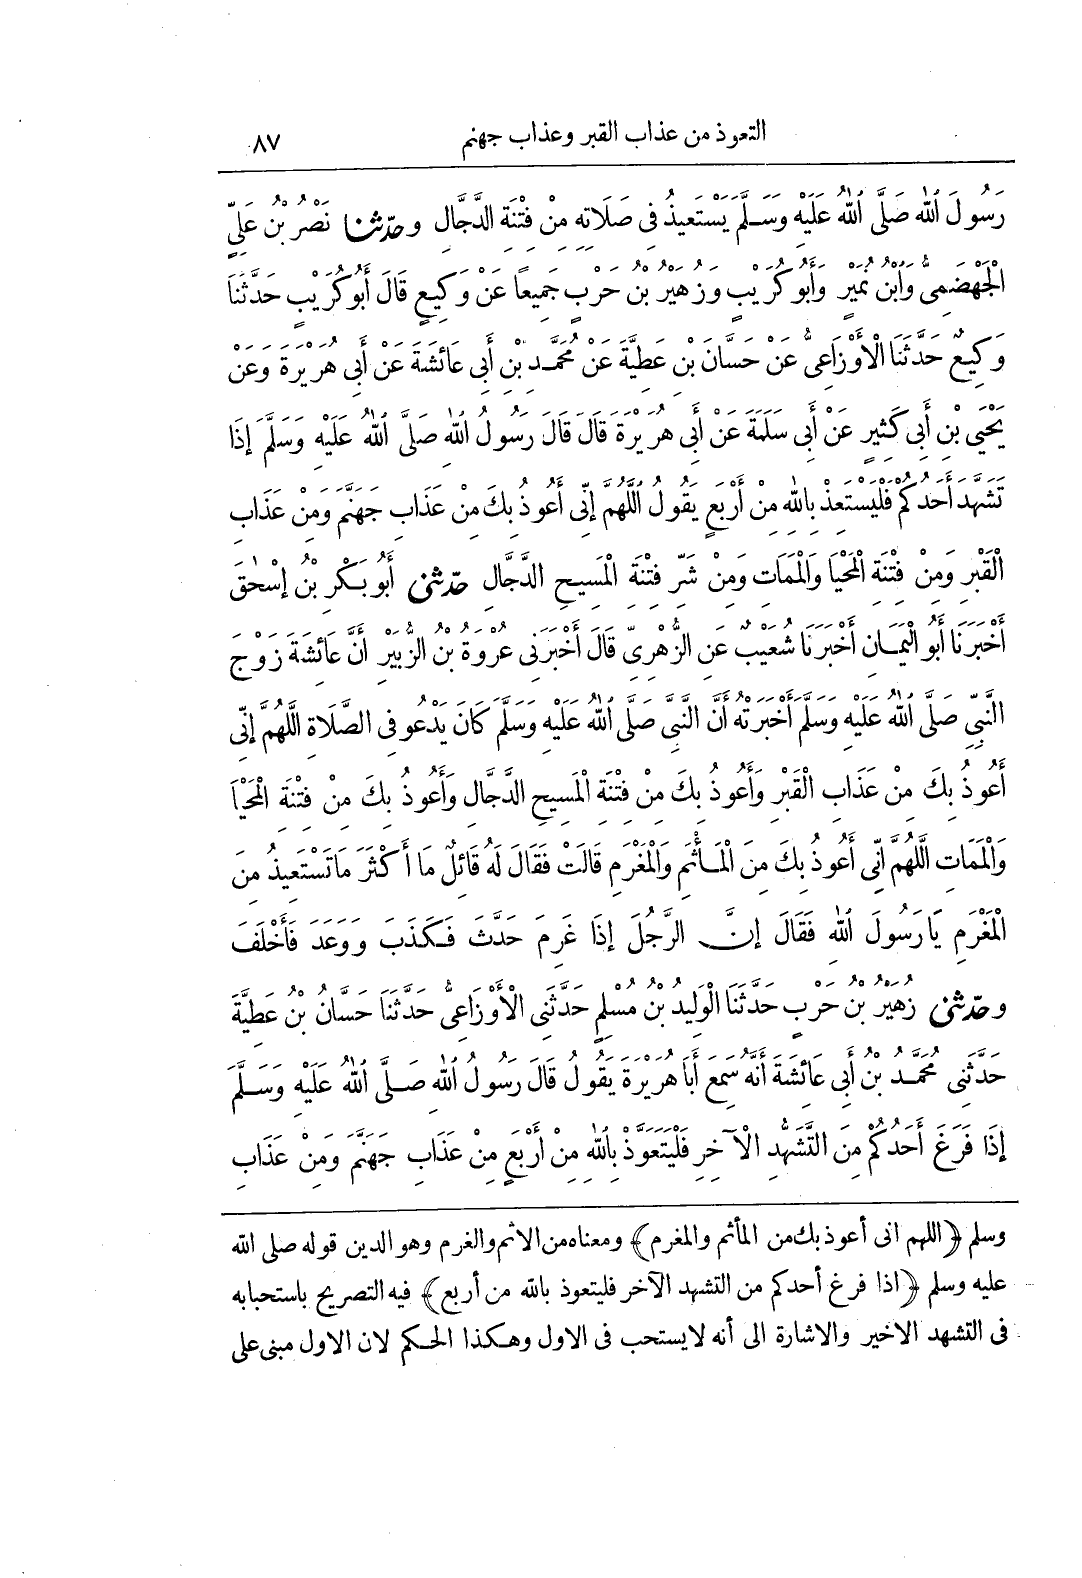 التعوذ من عذاب القبر وعذاب جهنم ٨٧
رَسُولَ اللهِ صَلَّى اللهُ عَلَيْهِ وَسَلَّمَ يَسْتَعِيذُ فِى صَلَاتِهِ مِنْ فِتْنَةِ الدَّجَّالِ وحدّثنا نَصْرُ بْنُ عَلِىٍّ
الْجَهْضَمِىُّ وَابْنُ نُمَيْرٍ وَأَبُو كُرَيْبٍ وَزُهَيْرُ بْنُ حَرْبٍ جَمِيعًا عَنْ وَكِيعٍ قَالَ أَبُو كُرَيْبٍ حَدَّثَنَا
وَكِيعٌ حَدَّثَنَا الْأَوْزَاعِىُّ عَنْ حَسَّانَ بْنِ عَطِيَّةَ عَنْ مُحَمَّدِ بْنِ أَبِى عَائِشَةَ عَنْ أَبِى هُرَيْرَةَ وَعَنْ
يَحْيَى بْنِ أَبِى كَثِيرٍ عَنْ أَبِى سَلَمَةَ عَنْ أَبِى هُرَيْرَةَ قَالَ قَالَ رَسُولُ اللهِ صَلَّى اللهُ عَلَيْهِ وَسَلَّمَ إِذَا
تَشَهَّدَ أَحَدُكُمْ فَلْيَسْتَعِذْ بِاللهِ مِنْ أَرْبَعٍ يَقُولُ اللَّهُمَّ إِنِّى أَعُوذُ بِكَ مِنْ عَذَابِ جَهَنَّمَ وَمِنْ عَذَابِ
الْقَبْرِ وَمِنْ فِتْنَةِ الْمَحْيَا وَالْمَمَاتِ وَمِنْ شَرِّ فِتْنَةِ الْمَسِيحِ الدَّجَّالِ حدّثنى أَبُو بَكْرِ بْنُ إِسْحٰقَ
أَخْبَرَنَا أَبُو الْيَمَانِ أَخْبَرَنَا شُعَيْبٌ عَنِ الزُّهْرِىِّ قَالَ أَخْبَرَنِى عُرْوَةُ بْنُ الزُّبَيْرِ أَنَّ عَائِشَةَ زَوْجَ
النَّبِىِّ صَلَّى اللهُ عَلَيْهِ وَسَلَّمَ أَخْبَرَتْهُ أَنَّ النَّبِىَّ صَلَّى اللهُ عَلَيْهِ وَسَلَّمَ كَانَ يَدْعُو فِى الصَّلَاةِ اللَّهُمَّ إِنِّى
أَعُوذُ بِكَ مِنْ عَذَابِ الْقَبْرِ وَأَعُوذُ بِكَ مِنْ فِتْنَةِ الْمَسِيحِ الدَّجَّالِ وَأَعُوذُ بِكَ مِنْ فِتْنَةِ الْمَحْيَا
وَالْمَمَاتِ اللَّهُمَّ إِنِّى أَعُوذُ بِكَ مِنَ الْمَأْثَمِ وَالْمَغْرَمِ قَالَتْ فَقَالَ لَهُ قَائِلٌ مَا أَكْثَرَ مَا تَسْتَعِيذُ مِنَ
الْمَغْرَمِ يَا رَسُولَ اللهِ فَقَالَ إِنَّ الرَّجُلَ إِذَا غَرِمَ حَدَّثَ فَكَذَبَ وَوَعَدَ فَأَخْلَفَ
وحدّثنى زُهَيْرُ بْنُ حَرْبٍ حَدَّثَنَا الْوَلِيدُ بْنُ مُسْلِمٍ حَدَّثَنِى الْأَوْزَاعِىُّ حَدَّثَنَا حَسَّانُ بْنُ عَطِيَّةَ
حَدَّثَنِى مُحَمَّدُ بْنُ أَبِى عَائِشَةَ أَنَّهُ سَمِعَ أَبَا هُرَيْرَةَ يَقُولُ قَالَ رَسُولُ اللهِ صَلَّى اللهُ عَلَيْهِ وَسَلَّمَ
إِذَا فَرَغَ أَحَدُكُمْ مِنَ التَّشَهُّدِ الْآخِرِ فَلْيَتَعَوَّذْ بِاللهِ مِنْ أَرْبَعٍ مِنْ عَذَابِ جَهَنَّمَ وَمِنْ عَذَابِ
وسلم ﴿اللهم انى أعوذ بك من المأثم والمغرم﴾ ومعناه من الاثم والغرم وهو الدين قوله صلى الله
عليه وسلم ﴿اذا فرغ أحدكم من التشهد الآخر فليتعوذ بالله من أربع﴾ فيه التصريح باستحبابه
فى التشهد الاخير والاشارة الى أنه لا يستحب فى الاول وهكذا الحكم لان الاول مبنى على